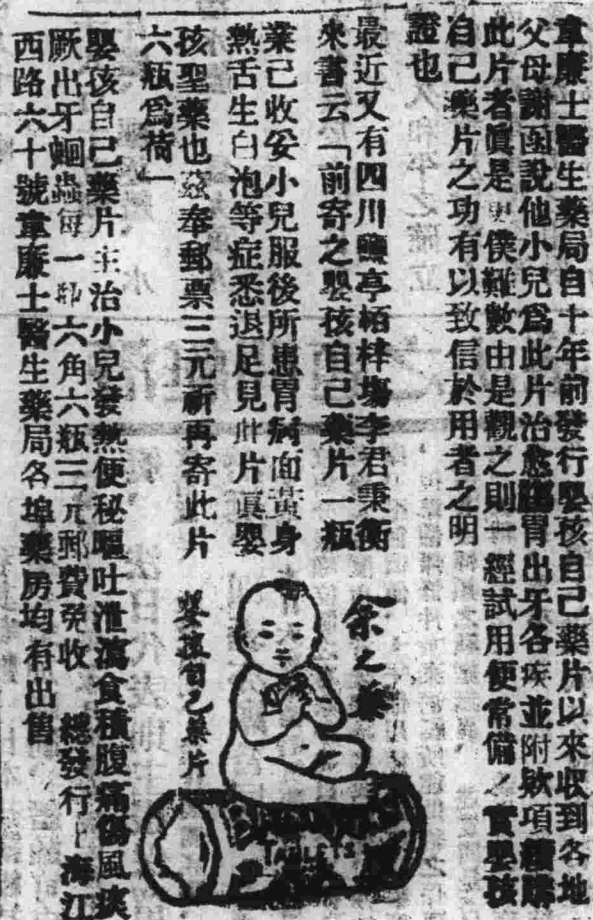 韋廉士醫生藥局自十年前發行嬰孩自己藥片以來收到各地
父母謝函說他小兒爲此片治愈腸胃出牙各疾並附欵項續購
此片者眞是更僕難數由是觀之則一經試用便常備之實嬰孩
自己藥片之功有以致信於用者之明
證也
最近又有四川鹽亭栢梓塲李君秉衡
來書云「前寄之嬰孩自己藥片一瓶
業已收妥小兒服後所患胃病面黃身
熱舌生白泡等症悉退足見此片眞嬰
孩聖藥也茲奉郵票三元祈再寄此片
六瓶爲荷」
嬰孩自己藥片主治小兒發熱便秘嘔吐泄瀉食積腹痛傷風痰
厥出牙蛔蟲每一瓶六角六瓶三元郵費免收 總發行上海江
西路六十號韋廉士醫生藥局各埠藥房均有出售
余之藥
嬰孩自己藥片
TABLETS